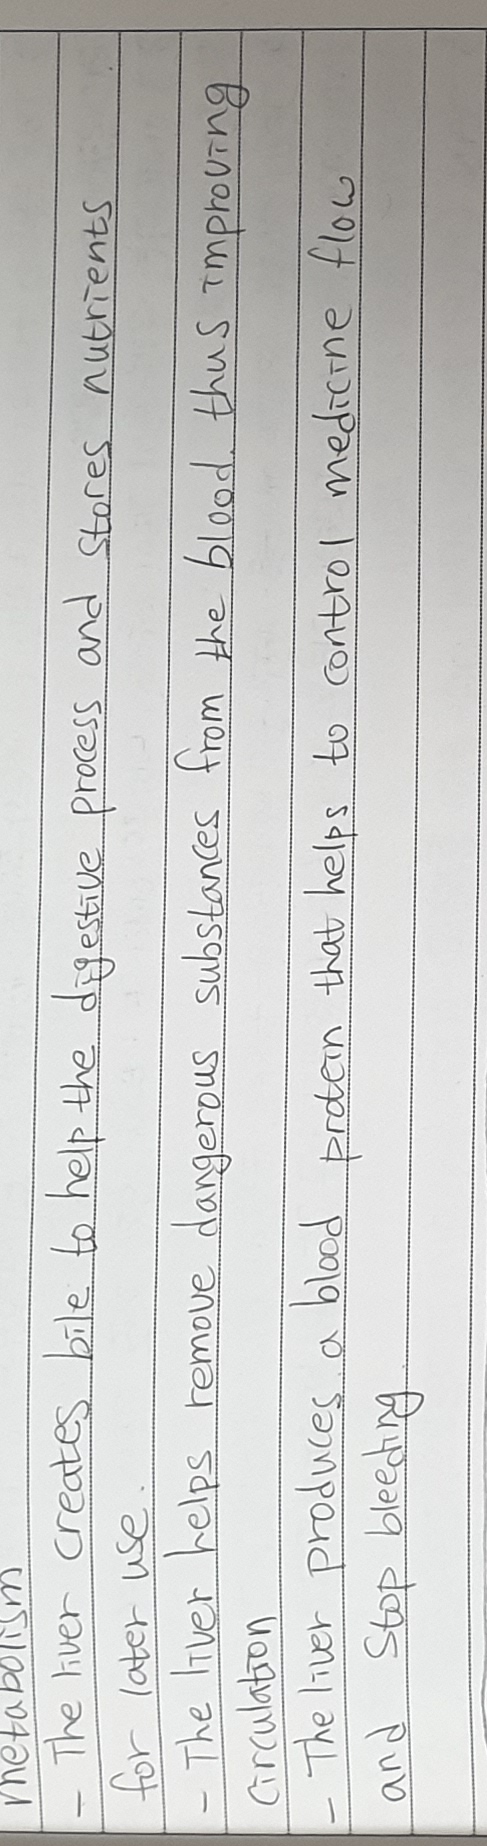 metabolism
- The liver creates bile to help the digestive process and stores nutrients
for later use.
- The liver helps remove dangerous substances from the blood. thus improving
circulation
- The liver produces a blood protein that helps to control medicine flow
and Stop bleeding.